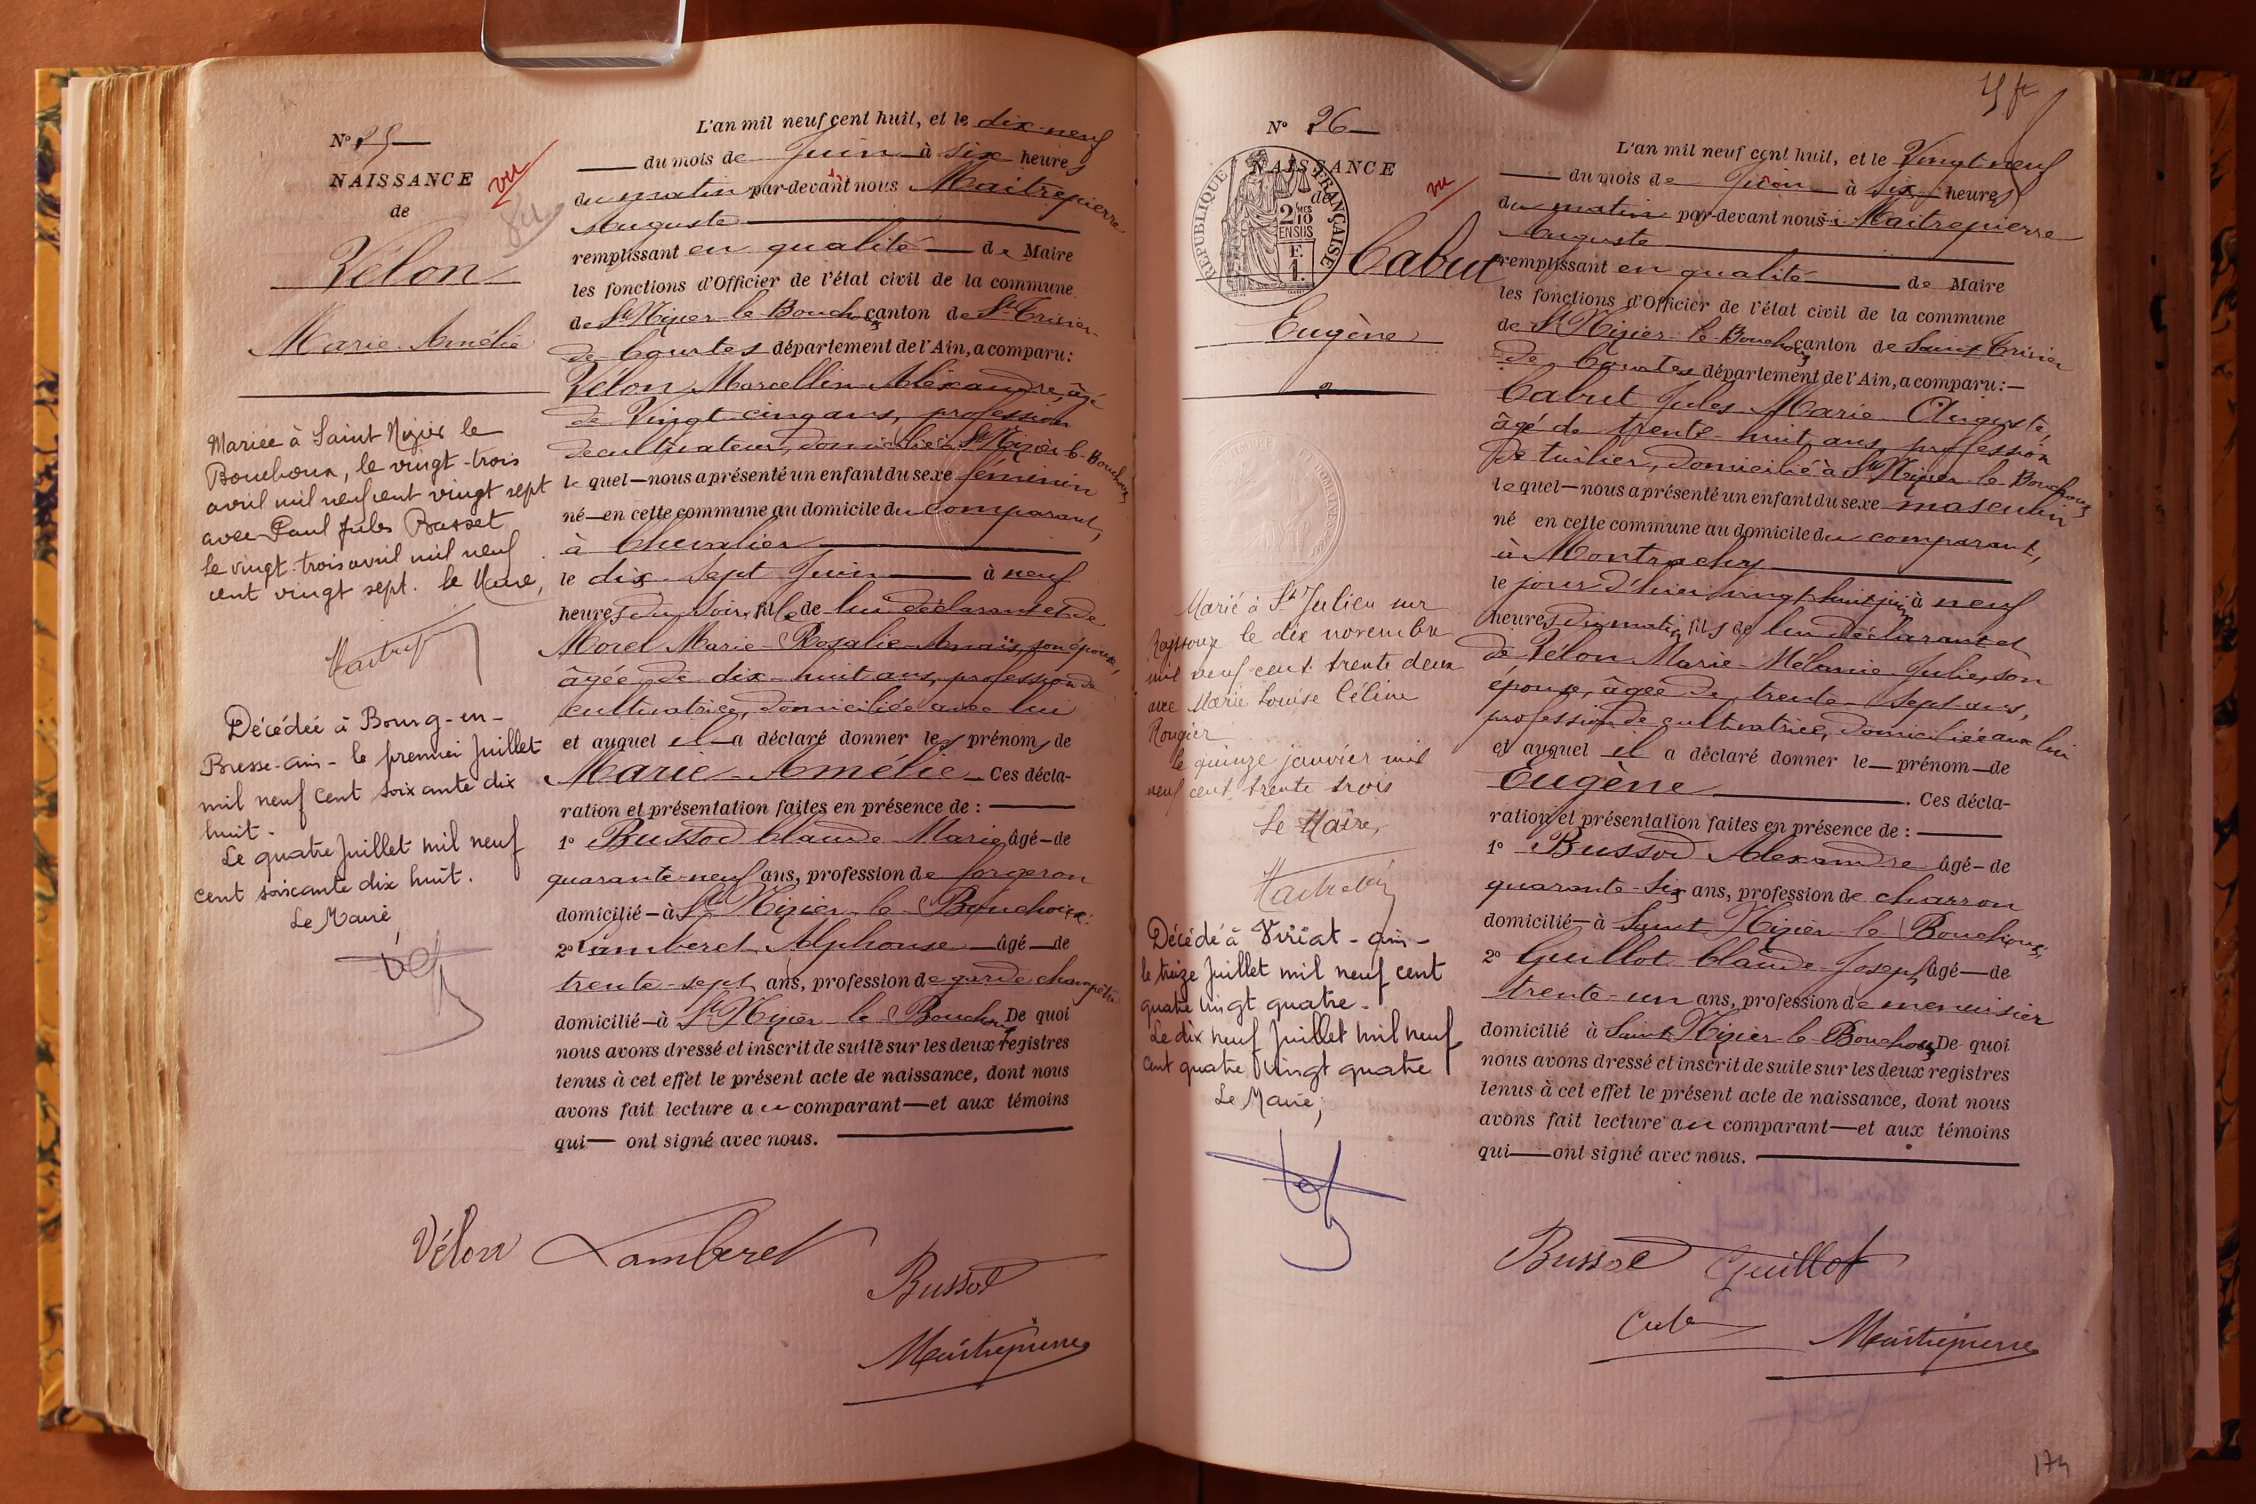 N° 25
NAISSANCE
de
Vélon
Marie Amélie
vu
Mariée à Saint Nizier le
Bouchoux, le vingt-trois
avril mil neuf cent vingt sept
avec Paul Jules Basset
le vingt-trois avril mil neuf
cent vingt sept. le Maire,
Décédée à Bourg-en-
Bresse-ain- le premier Juillet
mil neuf cent soixante dix
huit-
Le quatre Juillet mil neuf
cent soixante dix huit.
Le Maire,
L'an mil neuf cent huit, et le dix-neuf
du mois de Juin à six heures
du matin par-devant nous Maîtrepierre
Auguste
remplissant en qualité de Maire
les fonctions d'Officier de l'état civil de la commune
de St Nizier le Bouchoux canton de St Trivier-
de Courtes département de l'Ain, a comparu:
Vélon Marcellin Alexandre, âgé
de Vingt cinq ans, profession
de cultivateur, domicilié à St Nizier-le-Bouchoux
le quel—nous a présenté un enfant du sexe féminin
né—en cette commune au domicile du comparant,
à Chevalier
le dix-sept Juin à neuf
heures du soir, fille de lui déclarant et de
Morel Marie-Rosalie-Anaïs, son épouse,
âgée de dix-huit ans, profession de
cultivatrice, domiciliée avec lui
et auquel il a déclaré donner les prénoms de
Marie-Amélie Ces décla-
ration et présentation faites en présence de :
1° Bussod Claude Marie âgé—de
quarante-neuf ans, profession de forgeron
domicilié—à St Nizier-le-Bouchoux.
2° Lamberet Alphonse âgé—de
trente-sept ans, profession de garde champêtre
domicilié—à St Nizier le Bouchoux De quoi
nous avons dressé et inscrit de suite sur les deux registres
tenus à cet effet le présent acte de naissance, dont nous
avons fait lecture au comparant—et aux témoins
qui— ont signé avec nous.
Vélon Lamberet
Bussod
Maîtrepierre
N° 26
NAISSANCE
de
RÉPUBLIQUE FRANÇAISE
2 10
EN SUS
F.
1.
vu
Cabut
Eugène
Marié à St Julien sur
Reyssouze le dix novembre
mil neuf cent trente deux
avec Marie Louise Céline
Rougier
le quinze janvier mil
neuf cent trente trois
Le Maire,
Décédé à Viriat-ain-
le treize Juillet mil neuf cent
quatre vingt quatre-
Le dix neuf Juillet mil neuf
cent quatre Vingt quatre
Le Maire,
L'an mil neuf cent huit, et le Vingt-neuf
du mois de Juin à six heures
du matin par-devant nous Maîtrepierre
Auguste
remplissant en qualité de Maire
les fonctions d'Officier de l'état civil de la commune
de St Nizier-le-Bouchoux canton de Saint Trivier
de Courtes département de l'Ain, a comparu:—
Cabut Jules Marie Auguste,
âgé de trente-huit ans, profession
de tuilier, domicilié à St Nizier-le-Bouchoux
le quel—nous a présenté un enfant du sexe masculin
né en cette commune au domicile du comparant,
à Montrachy
le jour d'hier vingt huit juin à neuf
heures du matin, fils de lui déclarant et
de Vélon Marie-Mélanie Julie, son
épouse, âgée de trente-sept ans,
profession de cultivatrice, domiciliée avec lui
et auquel il a déclaré donner le—prénom—de
Eugène . Ces décla-
ration et présentation faites en présence de :
1° Bussod Alexandre âgé—de
quarante-six ans, profession de charron
domicilié—à Saint Nizier-le-Bouchoux,
2° Guillot Claude Joseph âgé—de
trente-un ans, profession de menuisier
domicilié à Saint Nizier-le-Bouchoux De quoi
nous avons dressé et inscrit de suite sur les deux registres
tenus à cet effet le présent acte de naissance, dont nous
avons fait lecture au comparant—et aux témoins
qui—ont signé avec nous.
Bussod Guillot
Maîtrepierre
174